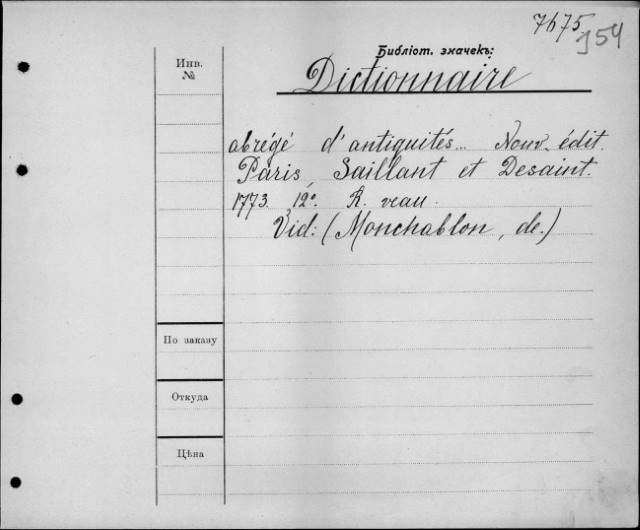 7675
954
Библіот. значекъ:
Инв.
№
Dictionnaire
abrégé d'antiquités... Nouv. édit.
Paris, Saillant et Desaint.
1773. 12º. R. veau.
Vid: (Monchablon, de.)
По заказу
Откуда
Цѣна